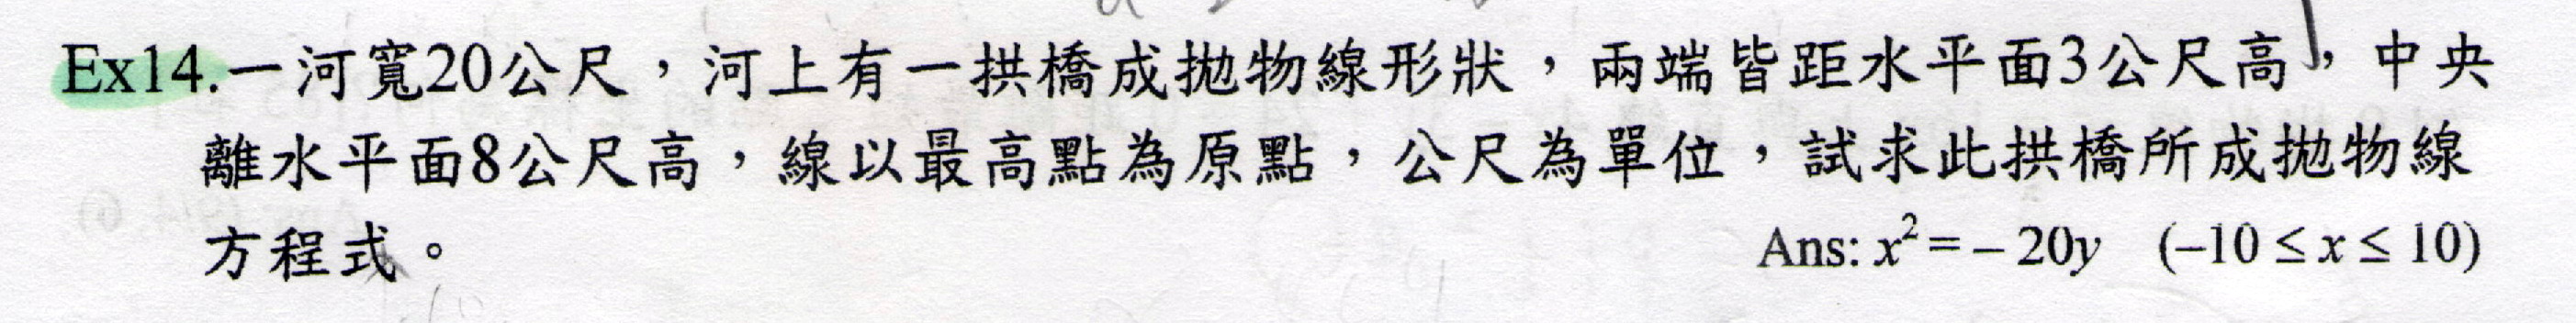 Ex14.一河寬20公尺，河上有一拱橋成拋物線形狀，兩端皆距水平面3公尺高，中央
離水平面8公尺高，線以最高點為原點，公尺為單位，試求此拱橋所成拋物線
方程式。 Ans: x² = – 20y (–10 ≤ x ≤ 10)